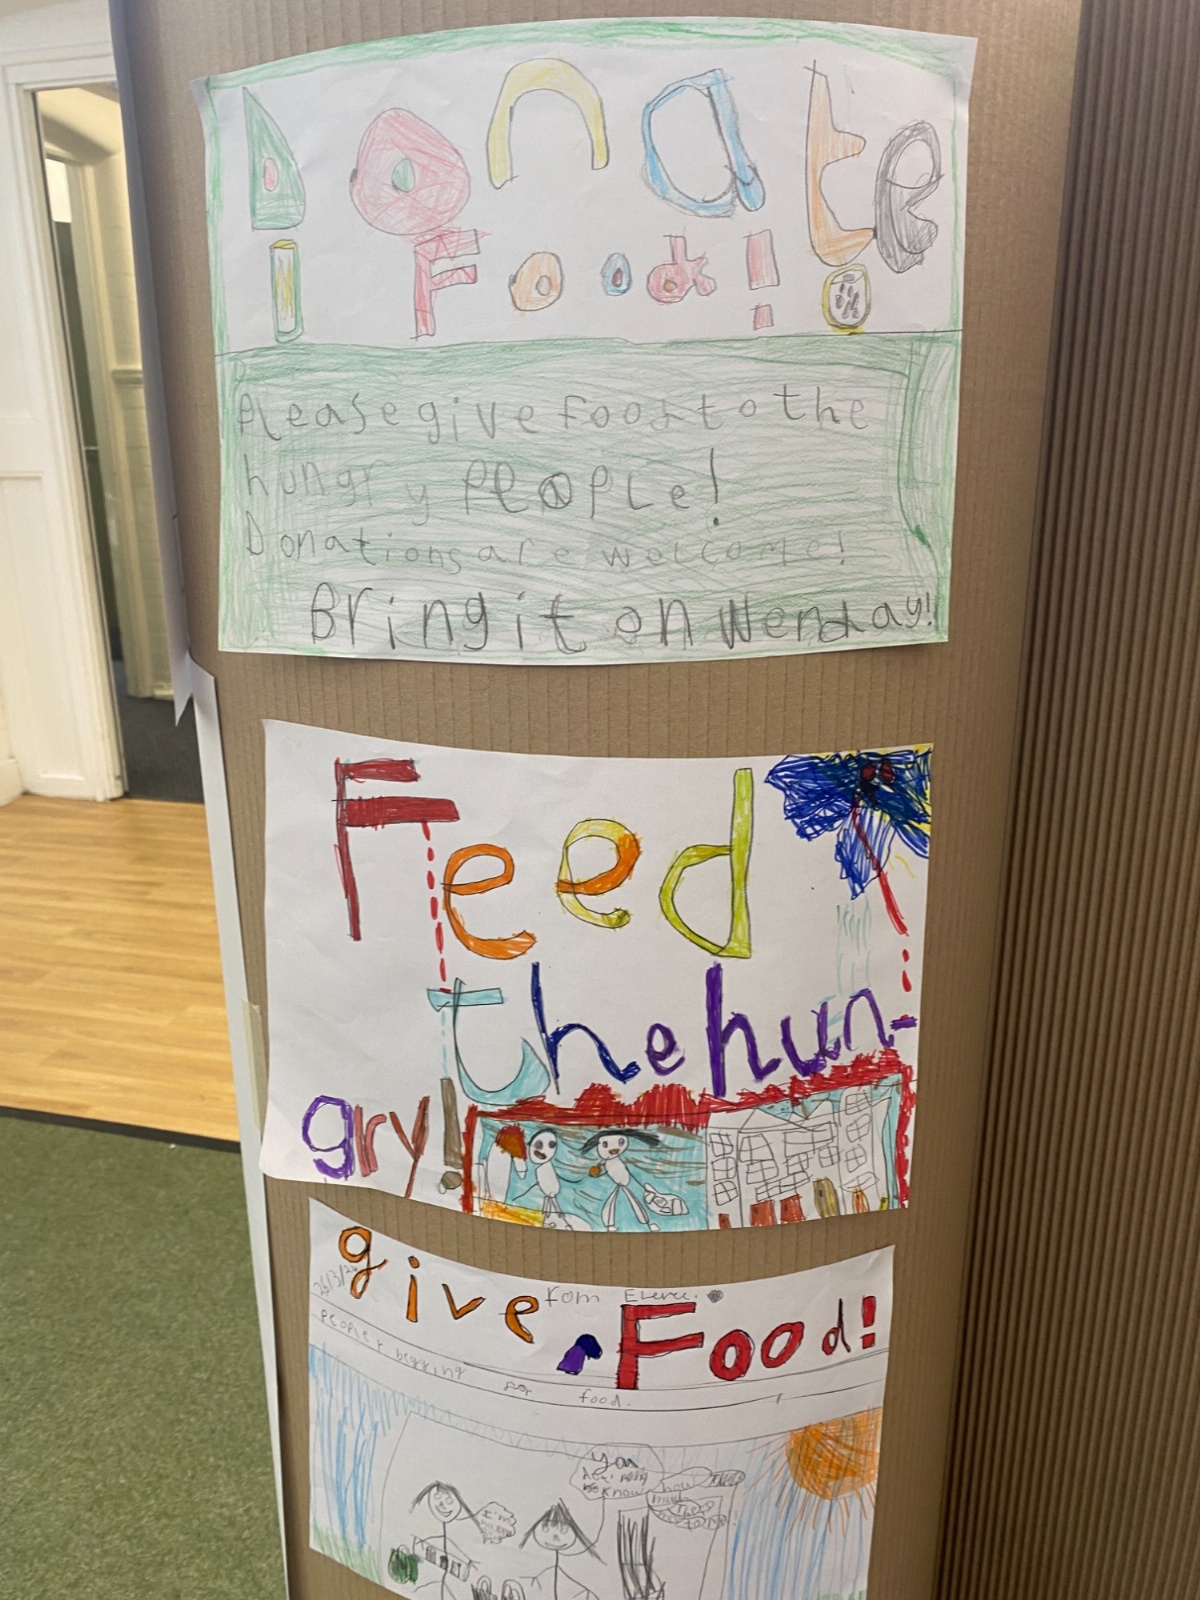 Donate
Food!
Please give food to the
hungry people!
Donations are welcome!
Bring it on Wenday!
Feed
the hun-
gry!
give
fom
Food!
people begging for food.
You
how